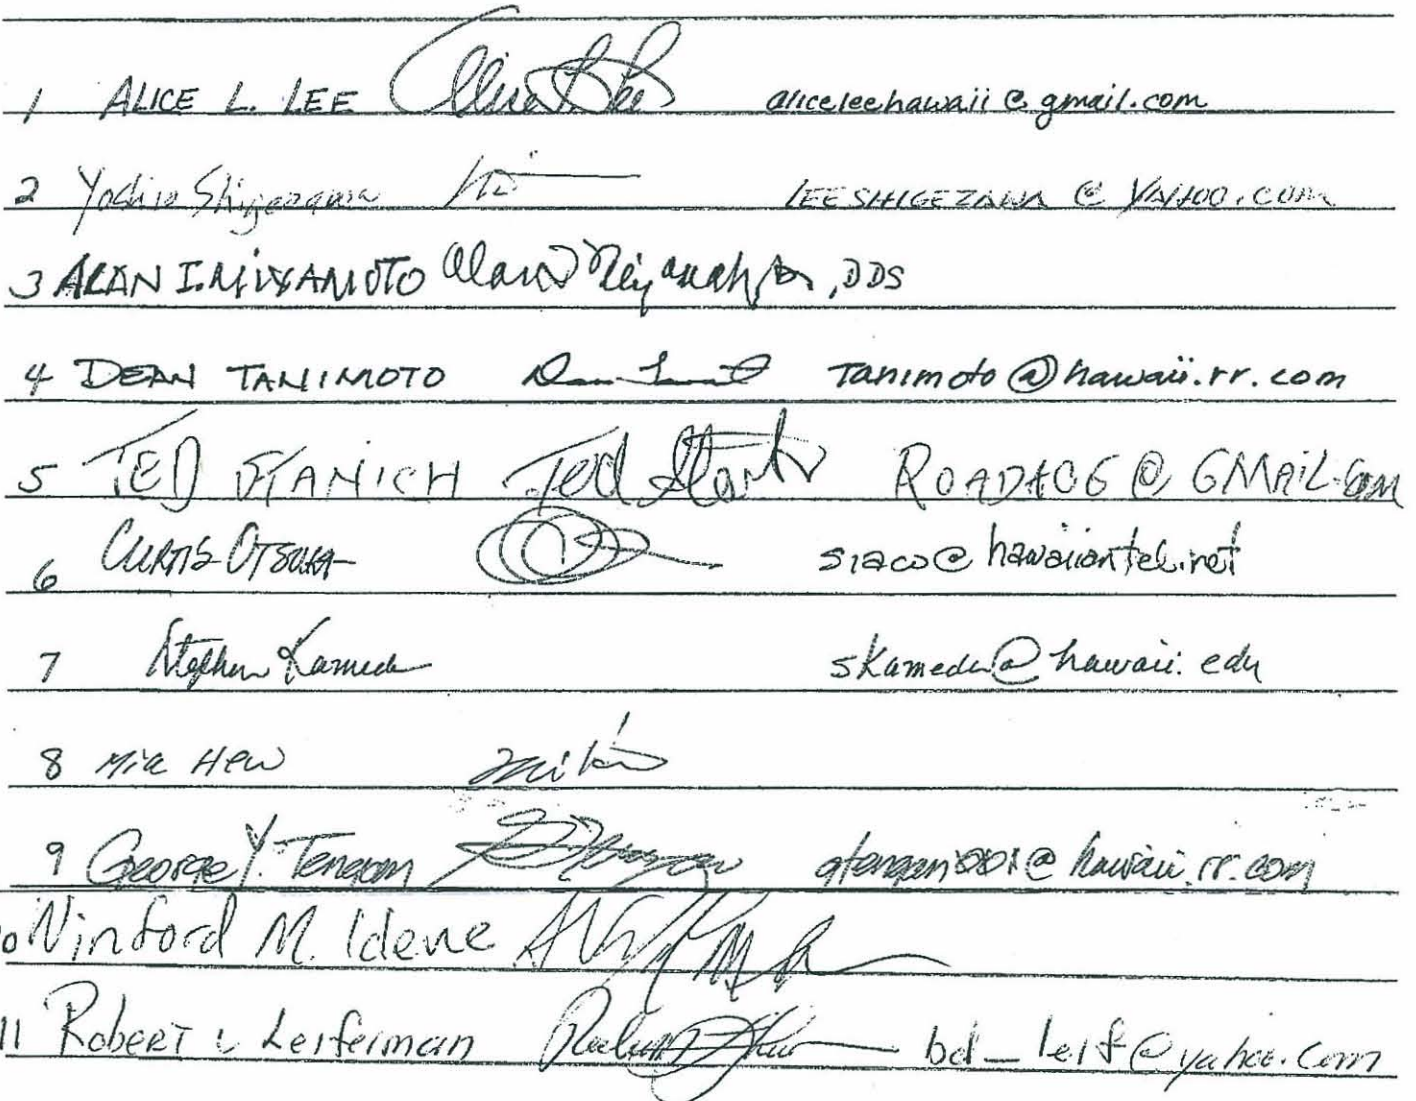 1 ALICE L. LEE Alice L Lee aliceleehawaii@gmail.com
2 Yoshio Shigezawa LEESHIGEZAWA @ YAHOO.COM
3 ALAN I. MIYAMOTO Alan Miyamoto, DDS
4 DEAN TANIMOTO Tanimoto@hawaii.rr.com
5 TED STANICH Ted @ GMAIL.COM
6 CURTIS OTSUKA @hawaiiantel.net
7 Stephen Kameda skameda@hawaii.edu
8 HEW
9 George Y. Tengan @hawaii.rr.com
10 Winford M. Idene
11 Robert L Leiferman bd_leif@yahoo.com